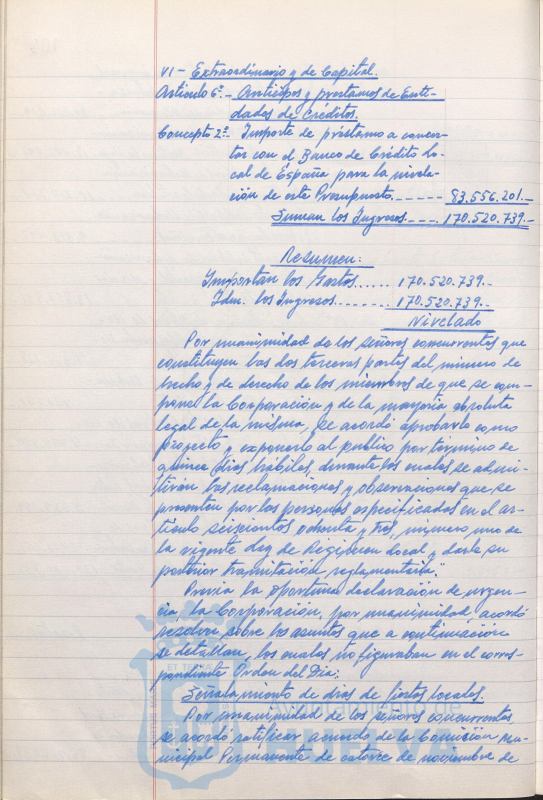 VI - Extraordinario y de Capital.
Artículo 6º.- Anticipos y prestamos de Enti-
dades de Créditos.
Concepto 2º.- Importe de préstamo a concer-
tar con el Banco de Crédito Lo-
cal de España para la nivela-
ción de este Presupuesto.------ 83.556.201.-
Suman los Ingresos.---- 170.520.739.-
Resumen:
Importan los Gastos..... 170.520.739.-
Idm. los Ingresos....... 170.520.739.-
Nivelado
Por unanimidad de los señores concurrentes que
constituyen las dos terceras partes del número de
hecho y de derecho de los miembros de que se com-
pone la Corporación y de la mayoría absoluta
legal de la misma, se acordó aprobarlo como
proyecto y exponerlo al publico por término de
quince días hábiles, durante los cuales se admi-
tirán las reclamaciones y observaciones que se
presenten por las personas especificadas en el ar-
tículo seiscientos ochenta y tres, número uno de
la vigente Ley de Régimen Local y darle su
posterior tramitación reglamentaria."
Previa la oportuna declaración de urgen-
cia, la Corporación, por unanimidad, acordó
resolver sobre los asuntos que a continuación
se detallan, los cuales no figuraban en el corres-
pondiente Orden del Dia:
Señalamiento de dias de fiestas locales.
Por unanimidad de los señores concurrentes
se acordó ratificar acuerdo de la Comisión Mu-
nicipal Permanente de catorce de noviembre de
ET TERRA
Ayuntamiento de
HUELVA